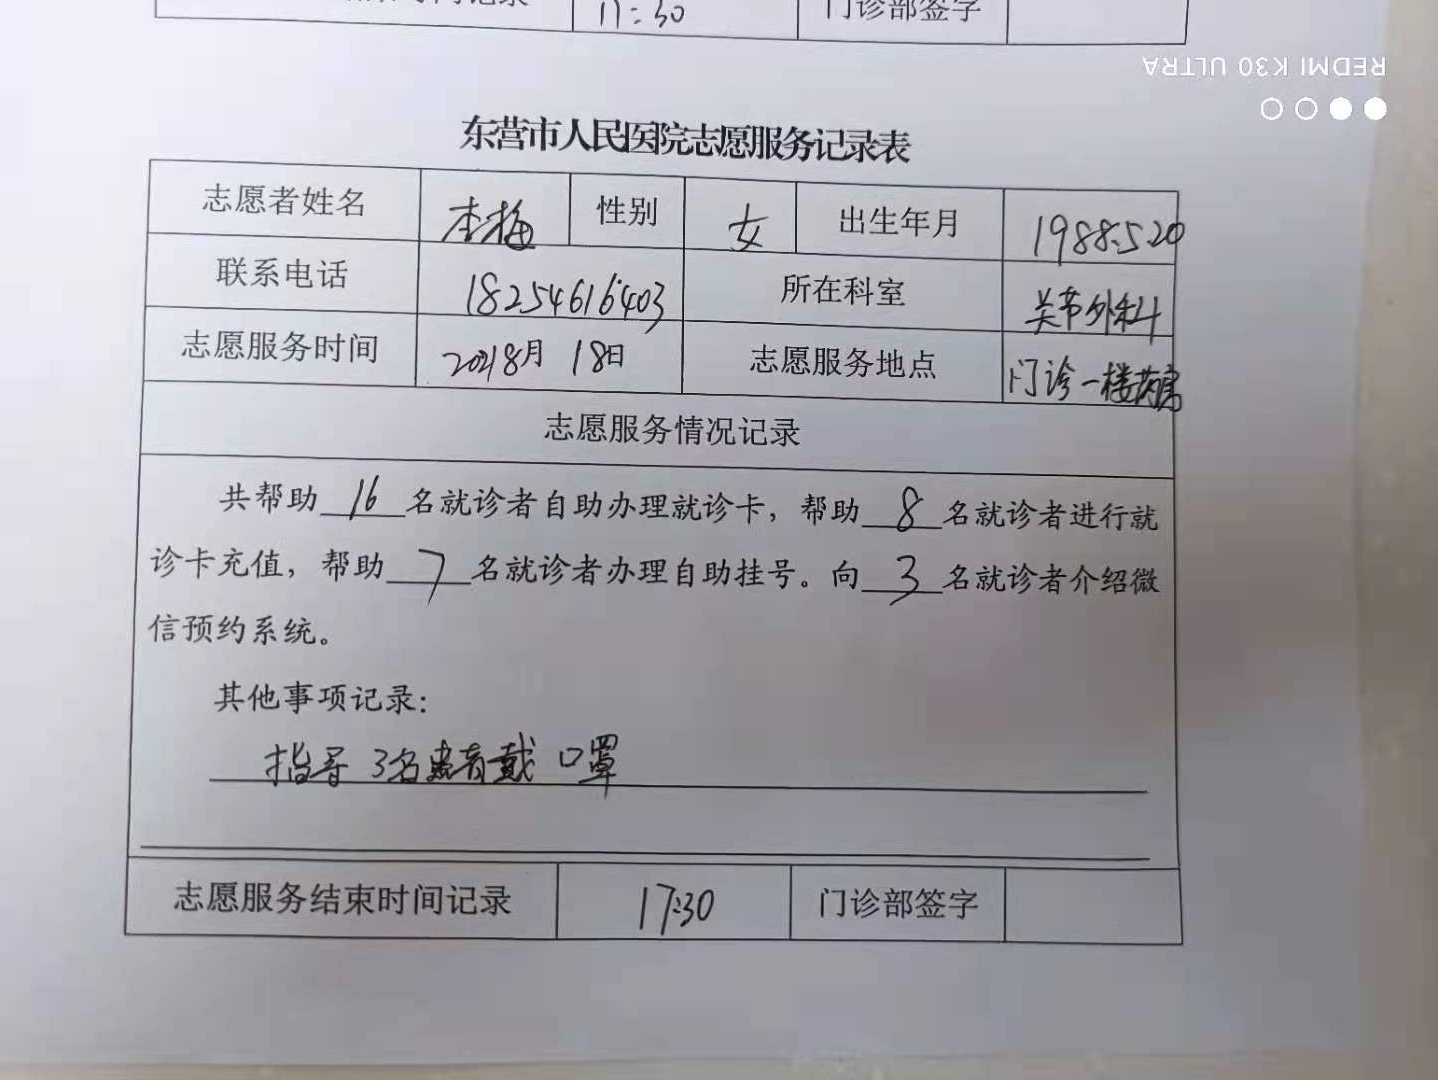 17:30 门诊部签字
REDMI K30 ULTRA
东营市人民医院志愿服务记录表
志愿者姓名 李梅 性别 女 出生年月 1988.5.20
联系电话 18254616403 所在科室 关节外科
志愿服务时间 20218月 18日 志愿服务地点 门诊一楼药房
志愿服务情况记录
共帮助 16 名就诊者自助办理就诊卡，帮助 8 名就诊者进行就
诊卡充值，帮助 7 名就诊者办理自助挂号。向 3 名就诊者介绍微
信预约系统。
其他事项记录：
指导 3名患者戴口罩
志愿服务结束时间记录 17:30 门诊部签字